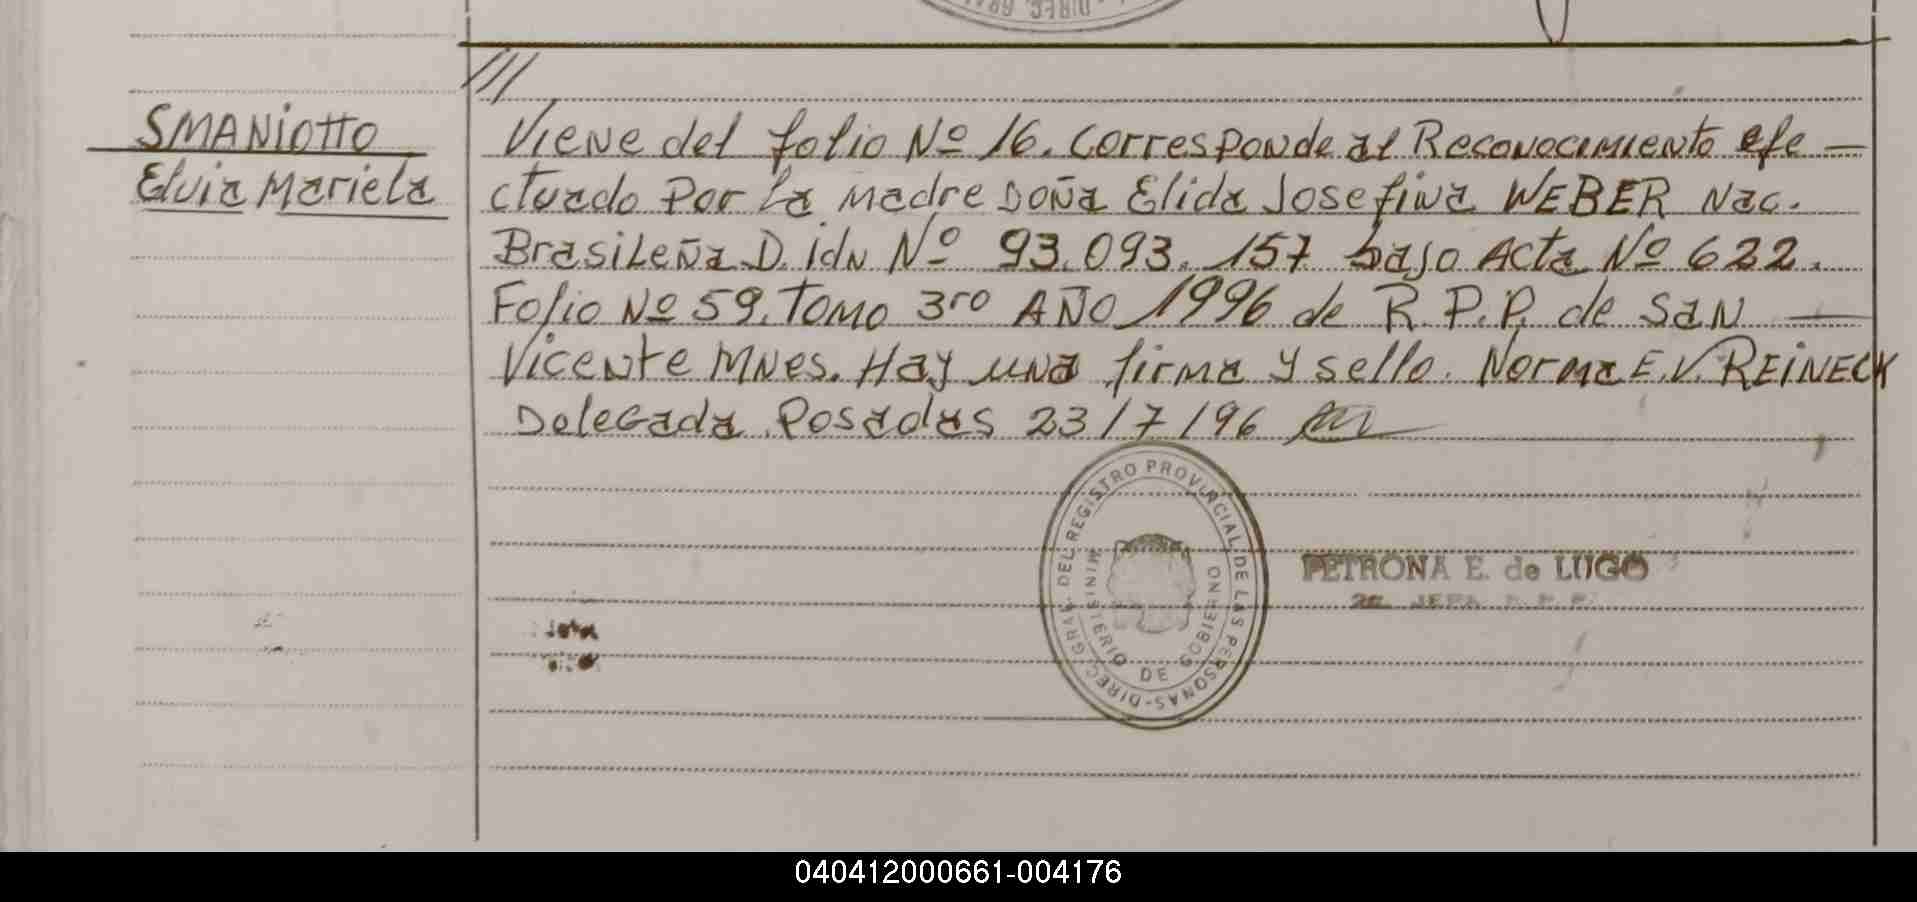 SMANiOTTO
Elvia Mariela
///
Viene del folio Nº 16. Corresponde al Reconocimiento efe —
ctuado Por la madre Doña Elida Josefina WEBER Nac.
Brasileña D. idn Nº 93.093.157 bajo Acta Nº 622.
Folio Nº 59. Tomo 3ro AÑO 1996 de R.P.P. de SAN —
Vicente MNes. Hay una firma y sello. Norma E.V. REINECK
Delegada Posadas 23/7/96
DIREC. GRAL. DEL REGISTRO PROVINCIAL DE LAS PERSONAS-
MINISTERIO DE GOBIERNO
PETRONA E. de LUGO
JEFA R.P.P.
040412000661-004176